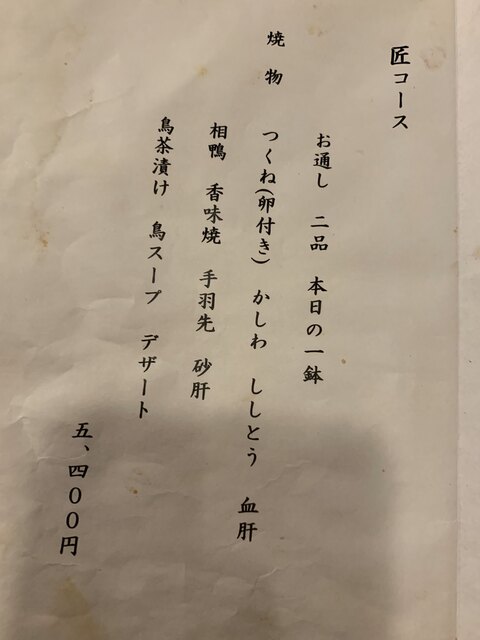 匠コース
お通し 二品 本日の一鉢
焼物 つくね(卵付き) かしわ ししとう 血肝
相鴨 香味焼 手羽先 砂肝
鳥茶漬け 鳥スープ デザート
五、四００円